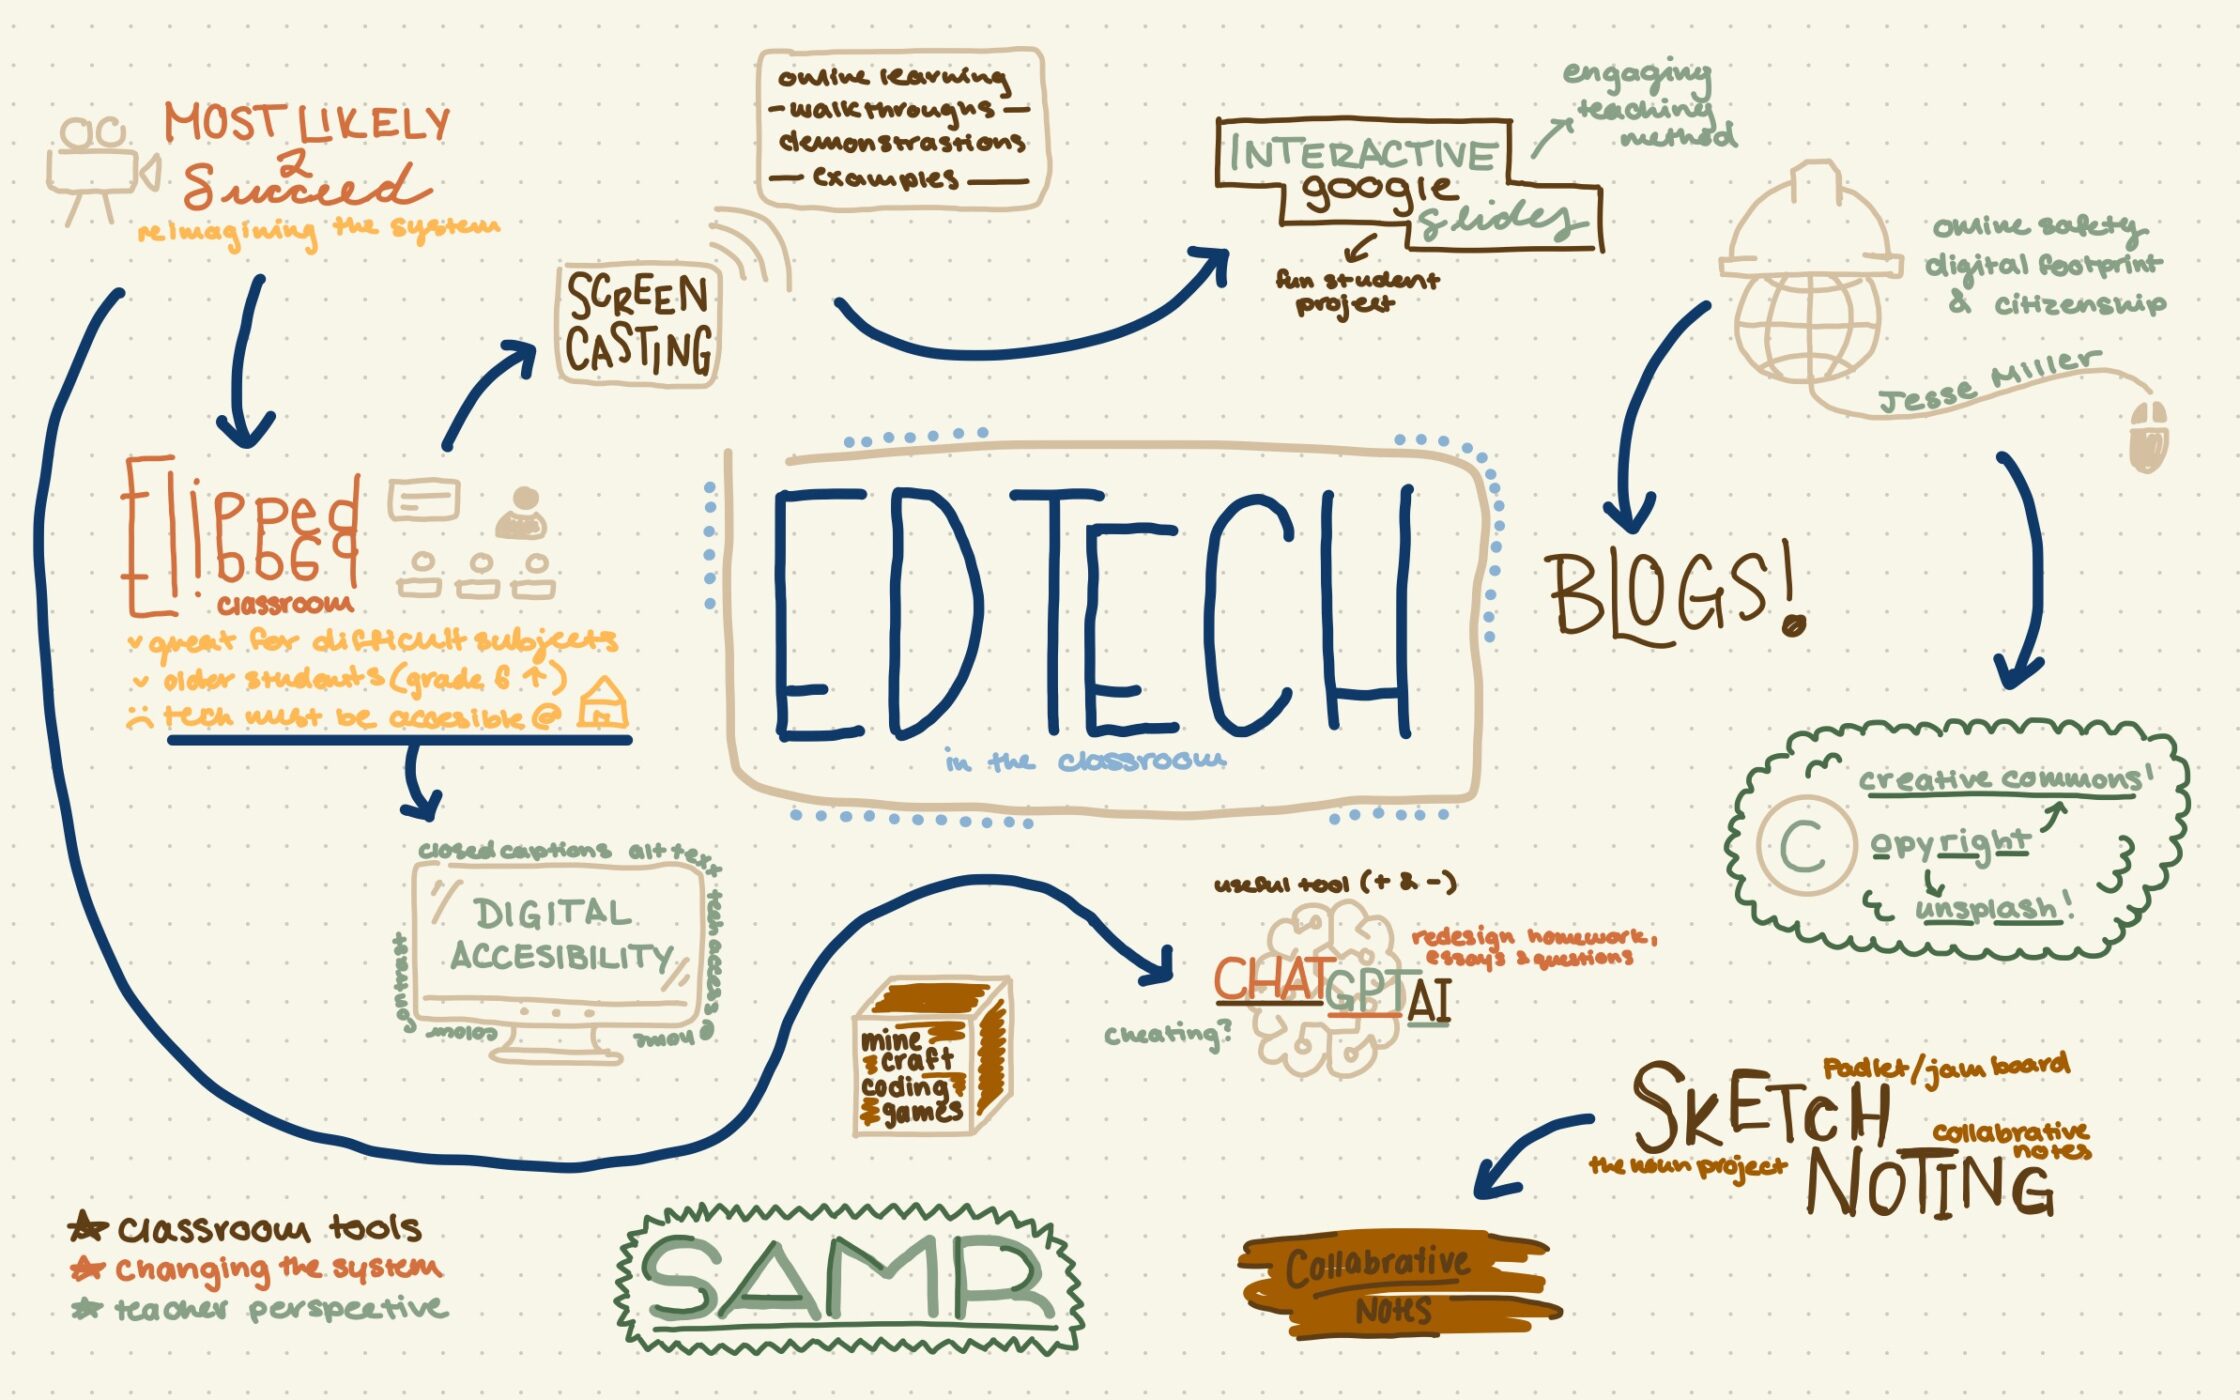 MOST LIKELY
2
Succeed
reimagining the system
online learning
walkthroughs
demonstrastions
examples
SCREEN
CASTING
INTERACTIVE
google
slides
engaging
teaching
method
fun student
project
online safety
digital footprint
& citizenship
Jesse Miller
Flipped
classroom
great for difficult subjects
older students (grade 6 ↑)
tech must be accesible @
EDTECH
in the classroom
BLOGS!
creative commons!
C opyright
unsplash!
closed captions alt text
tech access @
home
colour
contrast
DIGITAL
ACCESIBILITY
mine
craft
coding
games
useful tool (+ & -)
redesign homework,
essays & questions
CHAT GPT AI
cheating?
Padlet/jam board
SKETCH
collabrative
notes
the noun project
NOTING
Collabrative
Notes
classroom tools
changing the system
teacher perspective
SAMR